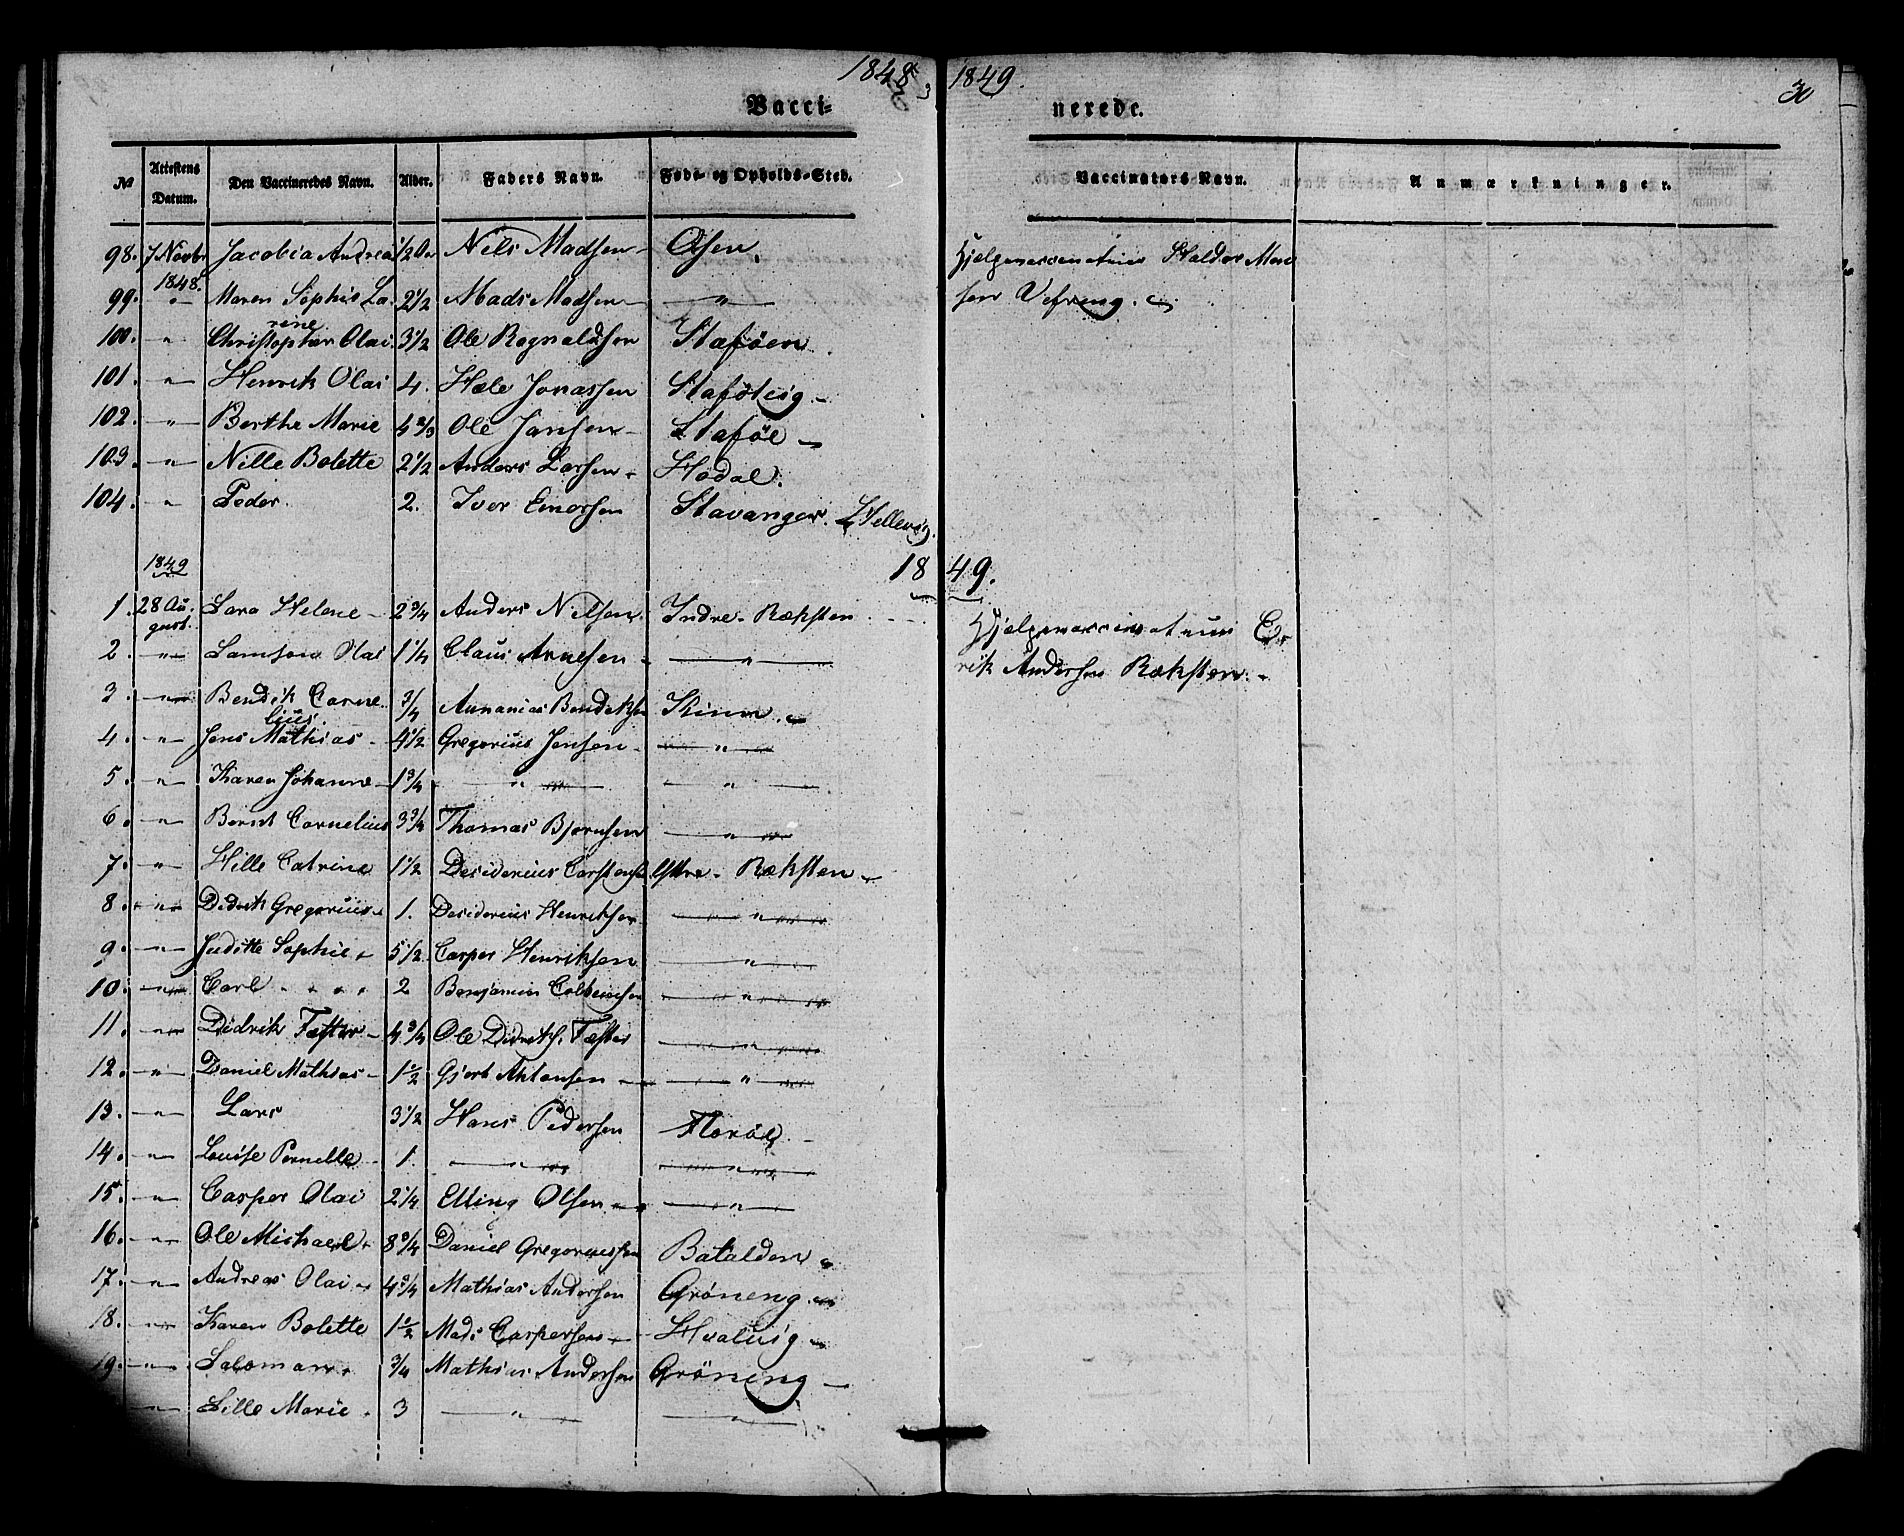 1848 1849. 30
Vacci- nerede.
No Attestens Datum. Den Vaccineredes Navn. Alder. Faders Navn. Føde- og Opholds-Sted. Vaccinateurs Navn. Anmærkninger.
98. 7 Novbr 1848. Jacobia Andrea 1/2 Nils Madsen Osen. Hjelpevaccinateur Haldor Mons
99. " Maren Sophie La 2 1/2 Mads Madsen " sen Vefring.
rine
100. " Christopher Olai 3 1/2 Ole Rognaldsen Staføen
101. " Henrik Olai 4. Hæle Jonassen
102. " Berthe Marie 4 2/3 Ole Jansen Staføe
103. " Nille Bolette 2 1/2 Anders Larsen Hodal.
104. " Peder. 2. Iver Stavanger.
1849 1849.
1. 28 Au- Lara Helene 2 3/4 Anders Nilsen Indre Ræksten Hjelpevaccinateur E
gust.
2. " Olai 1 1/4 Claus Arnesen " rik Andersen Ræksten.
3. " Bendik Corne 3/4 Annanias Bendiksen Kinn
lius.
4. " Jens Mathias 4 1/2 Gregorius Jensen "
5. " Karen Johanne 1 3/4 " "
6. " Bernt Cornelius 3 3/4 Thomas Bjørnsen "
7. " Hille Catrine 1 1/2 Desiderius Ystre Ræksten
8. " Didrik Gregorius 1. Desiderius Henriksen "
9. " Juditte Sophie 5 1/2 Casper Henriksen "
10. " Carl 2 Benjamin "
11. " Didrik Tæster 4 3/4 Ole Didriks. Tæster "
12. " Daniel Mathias 1 1/2 Gjert "
13. " Lars 3 1/2 Hans Pedersen Florøe
14. " Louise Pernelle 1. " "
15. " Casper Olai 2 1/4 Elling Olsen "
16. " Ole Michael 8 3/4 Daniel Gregoriussen Batalden
17. " Andreas Olai 4 3/4 Mathias Andersen Grøneng
18. " Karen Bolette 1 1/2 Mads Caspersen Hvalvig
19. " Salomon 3/4 Mathias Andersen Grøneng
" Sille Marie 3 " "